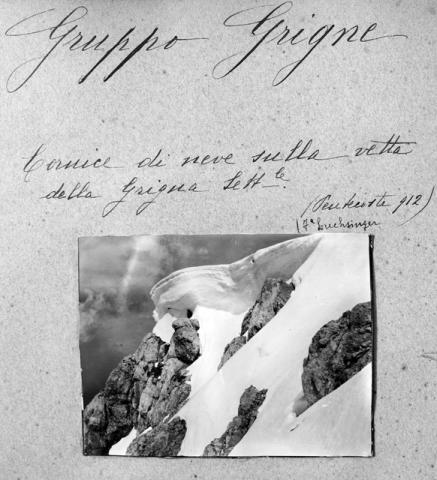 Gruppo Grigne
Cornice di neve sulla vetta
della Grigna Settle.
(Pentecoste 912)
(Fe Luchsinger